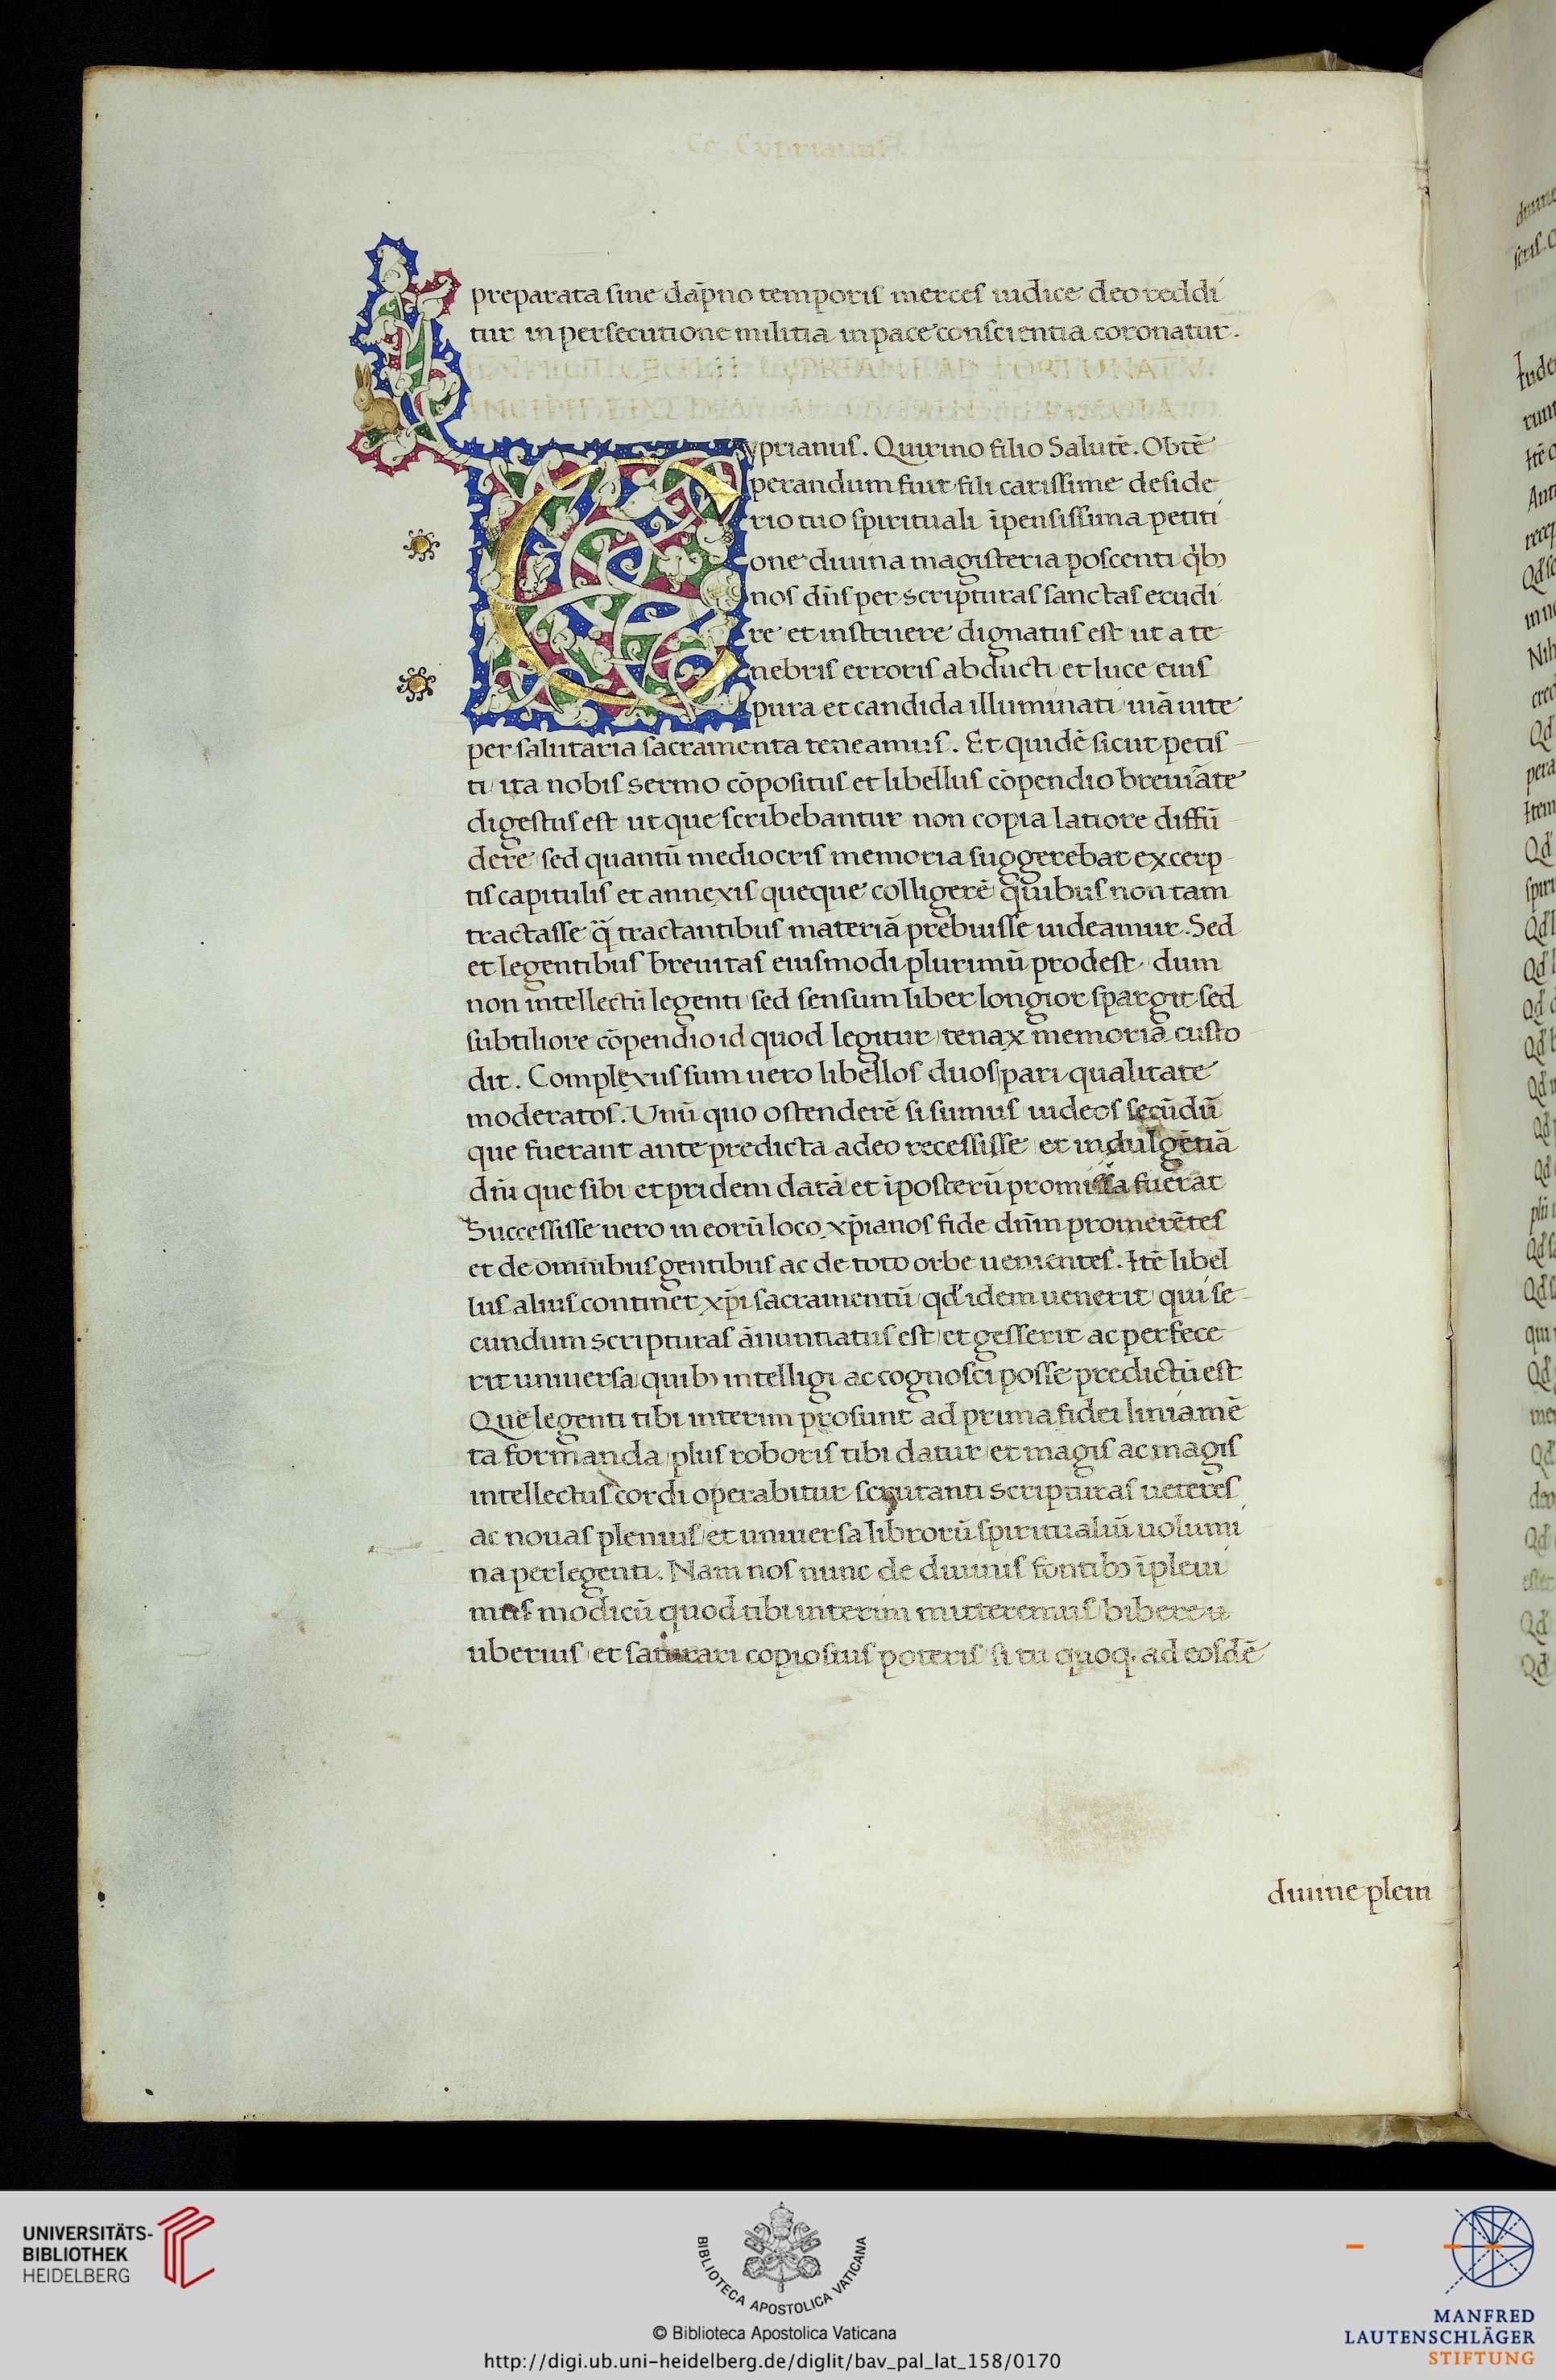 preparata sine dāpno temporis merces iudice deo reddi
tur in persecutione militia in pace conscientia coronatur.
CYPRIANI AD FORTUNATŪ.
INCIPIT
yprianus. Quirino filio Salutē. Obtē
perandum fuit fili carissime deside
rio tuo spirituali īpensissima petiti
one diuina magisteria poscenti q̄bꝫ
nos dn̄s per scripturas sanctas erudi
re et instruere dignatus est ut a te
nebris erroris abducti et luce eius
pura et candida illuminati uiā uite
per salutaria sacramenta teneamus. Et quidē sicut petis
ti ita nobis sermo cōpositus et libellus cōpendio breuiāte
digestus est ut que scribebantur non copia latiore diffū
derē sed quantū mediocris memoria suggerebat excerp
tis capitulis et annexis queque colligerē quibus non tam
tractasse q̄ tractantibus materiā prebuisse uideamur. Sed
et legentibus breuitas eiusmodi plurimū prodest dum
non intellectū legenti sed sensum liber longior spargit sed
subtiliore cōpendio id quod legitur tenax memoria custo
dit. Complexus sum uero libellos duos pari qualitate
moderatos. Unū quo ostenderē si sumus iudeos secūdū
que fuerant ante predicta a deo recessisse et indulgētiā
dn̄i que sibi et pridem datā et īposterū promissa fuerat
Successisse uero in eorū loco xp̄ianos fide dn̄m promerētes
et de omnibus gentibus ac de toto orbe uenientes. Itē libel
lus alius continet xp̄i sacramentū qd' idem uenerit qui se
cundum scripturas ānuntiatus est et gesserit ac perfece
rit uniuersa quibꝫ intelligi ac cognosci posse predictū est
Que legenti tibi interim prosunt ad prima fidei liniamē
ta formanda plus roboris tibi datur et magis ac magis
intellectus cordi operabitur scrutanti scripturas ueteres
ac nouas plenius et uniuersa librorū spiritualiū uolumi
na perlegenti. Nam nos nunc de diuinis fontibꝫ īpleui
mus modicū quod tibi interim mitteremus bibere u
uberius et saturari copiosius poteris si tu quoq. ad eosdē
diuine pleni
UNIVERSITÄTS-
BIBLIOTHEK
HEIDELBERG
BIBLIOTECA APOSTOLICA VATICANA
© Biblioteca Apostolica Vaticana
http://digi.ub.uni-heidelberg.de/diglit/bav_pal_lat_158/0170
MANFRED
LAUTENSCHLÄGER
STIFTUNG